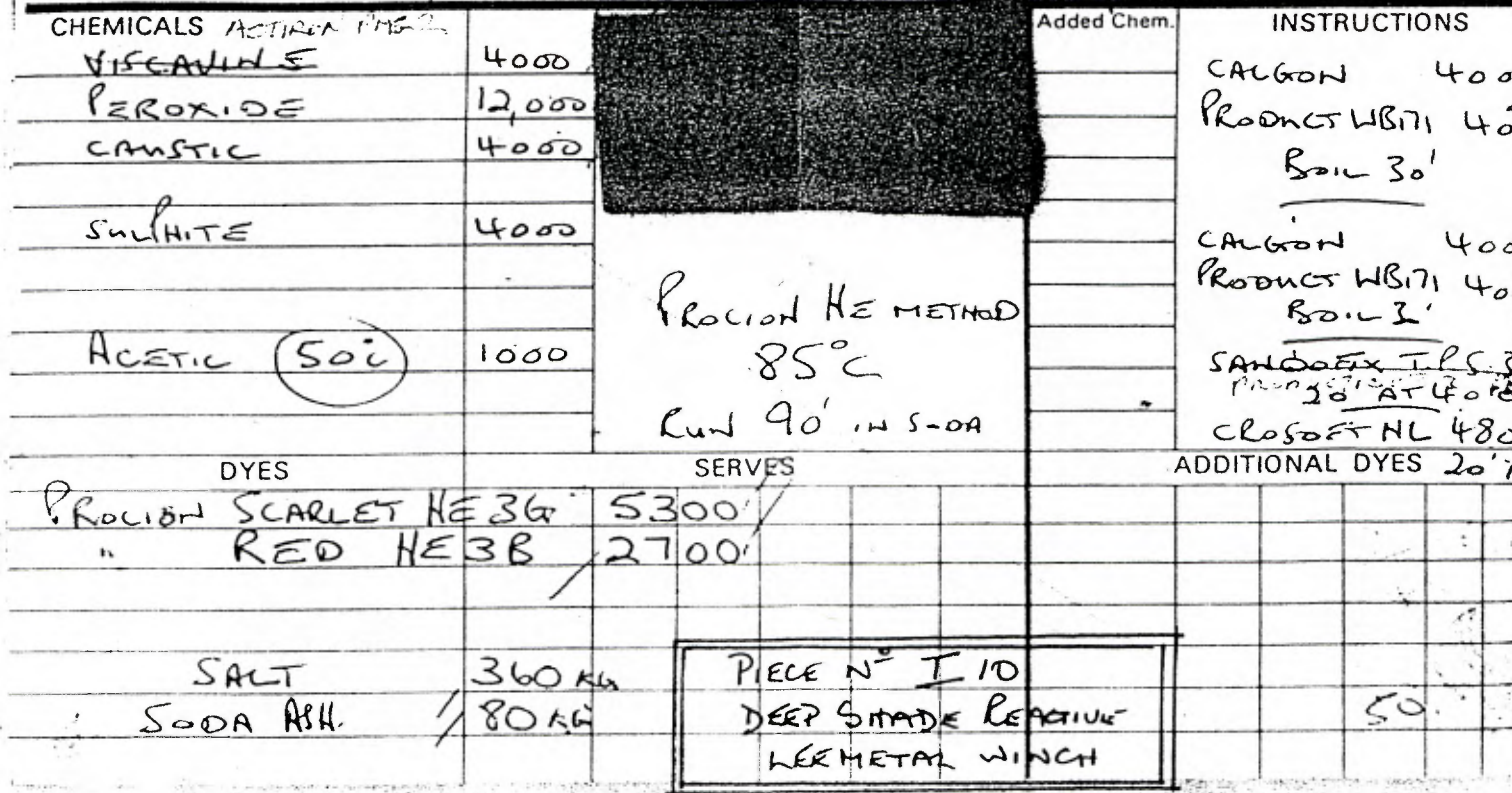 CHEMICALS
VISCAVINE 4000
PEROXIDE 12,000
CAUSTIC 4000
SULPHITE 4000
ACETIC 50% 1000
PROCION HE METHOD
85°C
RUN 90' IN SODA
Added Chem.
INSTRUCTIONS
CALGON 400
PRODUCT WB171 40
BOIL 30'
CALGON 400
PRODUCT WB171 40
BOIL
SANDOFIX
20' AT 40°C
CROSOFT NL 480
DYES
SERVES
ADDITIONAL DYES 20'
PROCION SCARLET HE3G 5300
" RED HE3B 2700
SALT 360 KG
SODA ASH. 80 KG
PIECE Nº I 10
DEEP SHADE REACTIVE
LEEMETAL WINCH
50